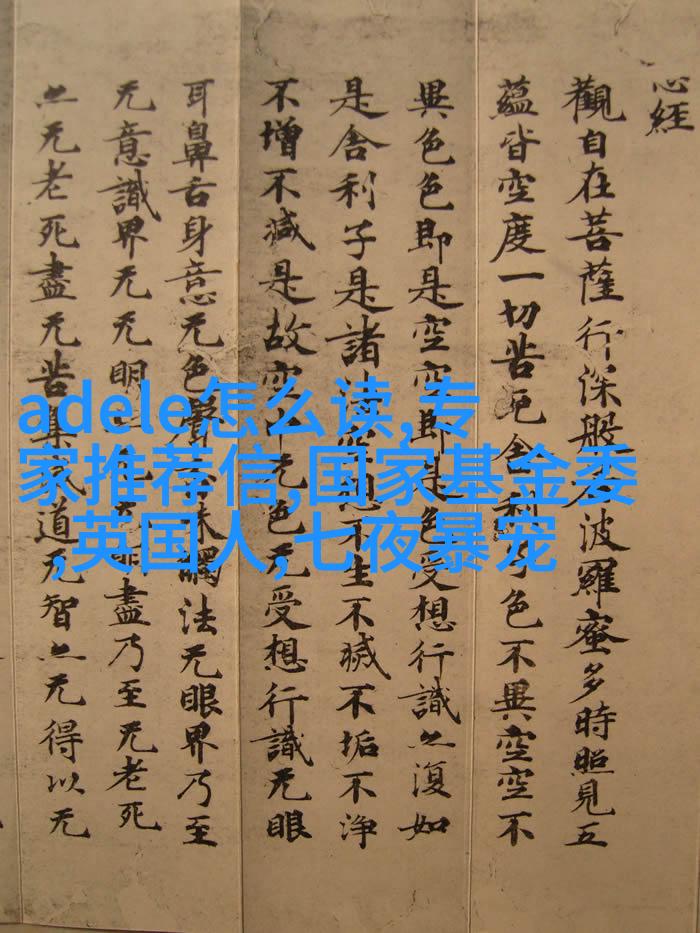 心經
觀自在菩薩行深般波羅蜜多時照見五
蘊皆空度一切苦厄舍利子色不異空空不
異色色即是空空即是色受想行識亦復如
是舍利子是諸不生不滅不垢不淨
不增不減是故空中无色无受想行識无眼
耳鼻舌身意无色聲味觸法无眼界乃至
无意識界无无明盡乃至无老死
亦无老死盡无苦集道无智亦无得以无
adele怎么读,专
家推荐信,国家基金委
,英国人,七夜暴宠